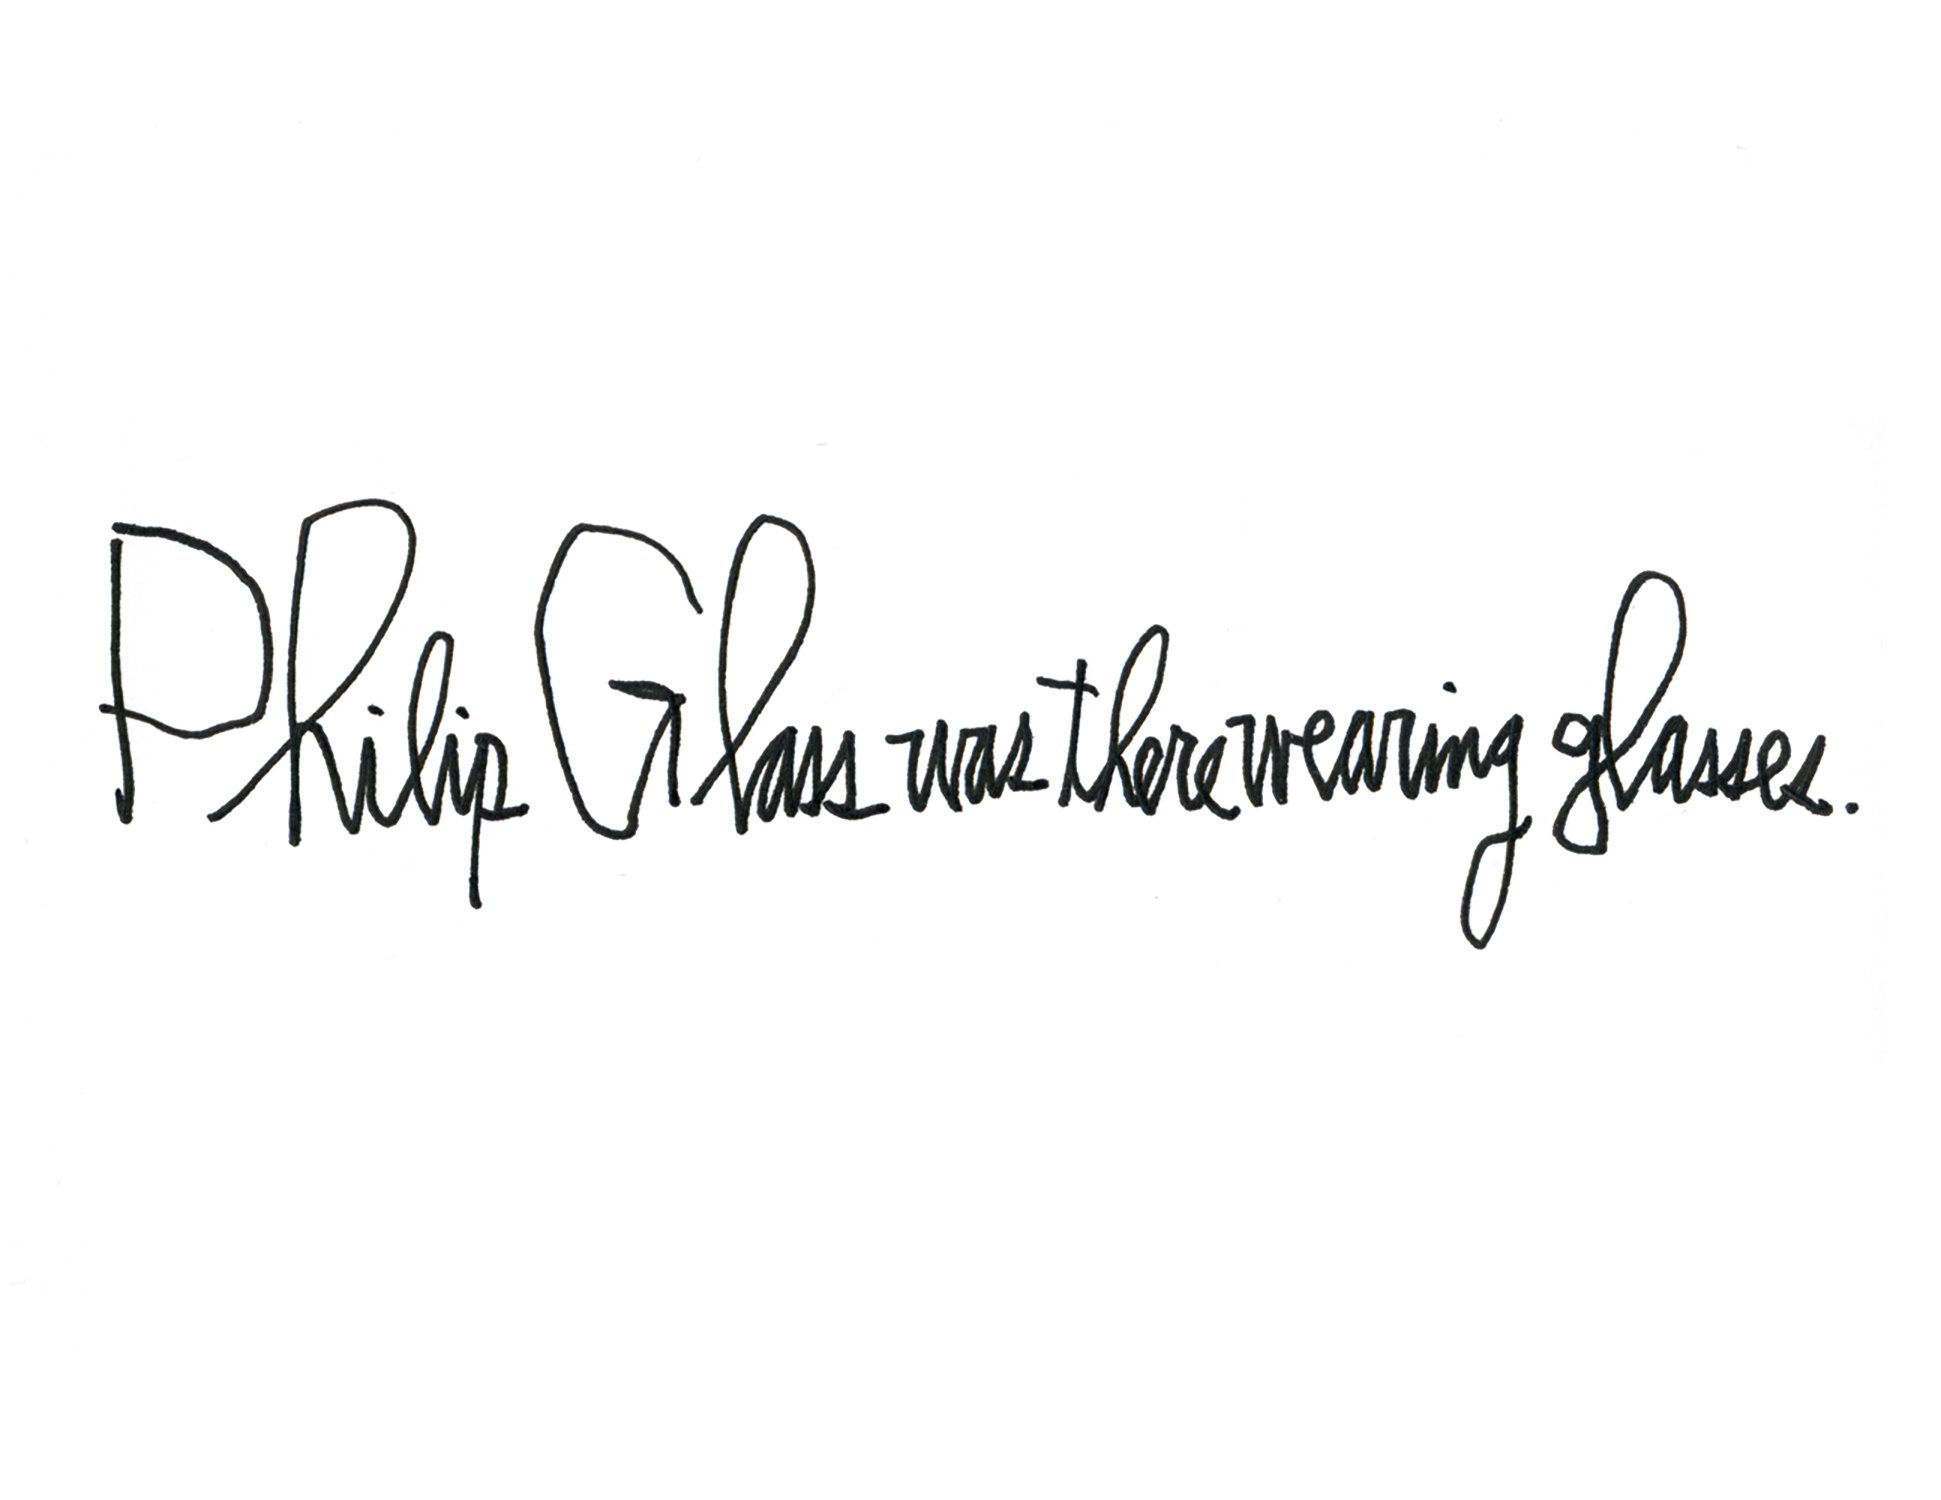 Philip Glass was there wearing glasses.